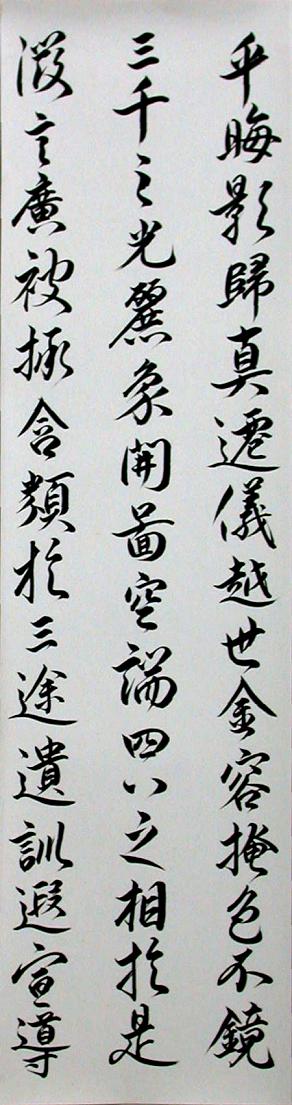 乎晦影歸真遷儀越世金容掩色不鏡
三千之光麗象開圖空端四八之相於是
微言廣被拯含類於三途遺訓遐宣導